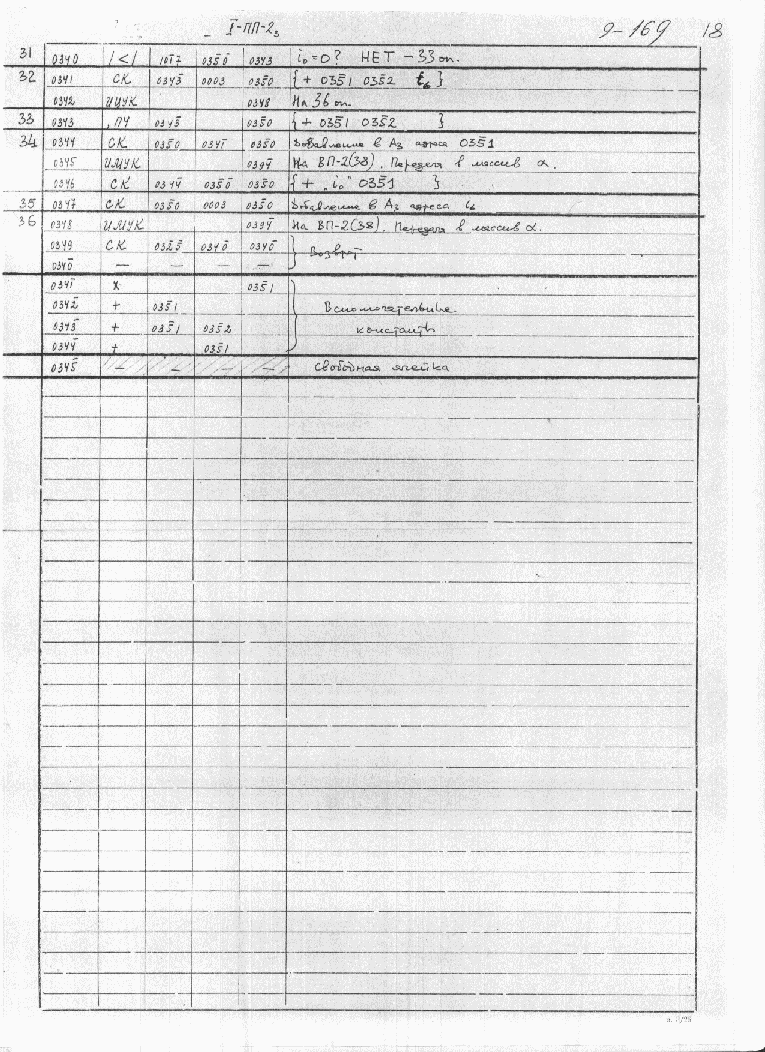 I-ПП-2₃ 9-169 18
31 0340 |<| 1017̄ 035̄0̄ 0343 i₀=0? НЕТ – 33 оп.
32 0341 СК 0343̄ 0003 035̄0 {+ 035̄1 0352 t₆}
0342 ЦУУК 0348 На 36 оп.
33 0343 ,ПУ 0345̄ 035̄0 {+ 035̄1 0352 }
34 0344 СК 035̄0 0341̄ 035̄0 Добавление в А₃ адреса 035̄1
0345 ЦМУК 0397̄ На ВП-2(38). Передача в массив α.
0346 СК 0344̄ 035̄0̄ 035̄0 {+ „i₀" 035̄1 }
35 0347 СК 035̄0 0003 035̄0 Добавление в А₃ адреса
36 0348 ЦМУК 0397̄ На ВП-2(38). Передача в массив α.
0349 СК 0325̄ 0340̄ 0340̄ } Возврат
0340̄ — — — —
0341̄ х 035̄1
0342̄ + 035̄1 Вспомогательные
0343̄ + 035̄1 0352 константы
0344̄ + 035̄1
0345̄ – – – – Свободная ячейка